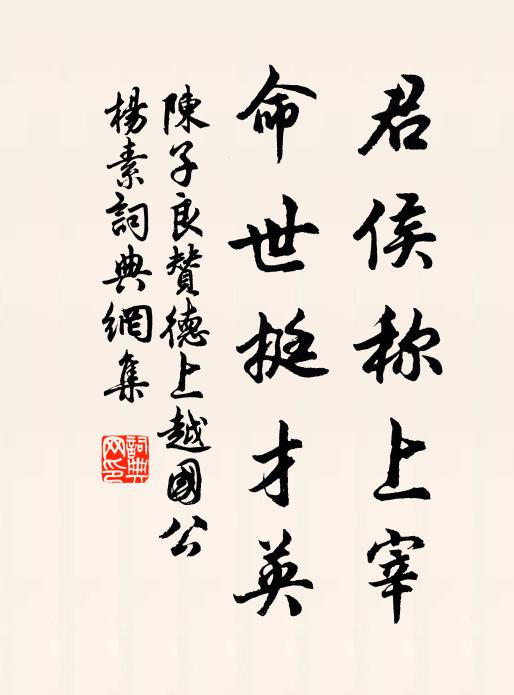 君侯称上宰
命世挺才英
陳子良赞德上越國公
楊素詞典網集
詞典网印